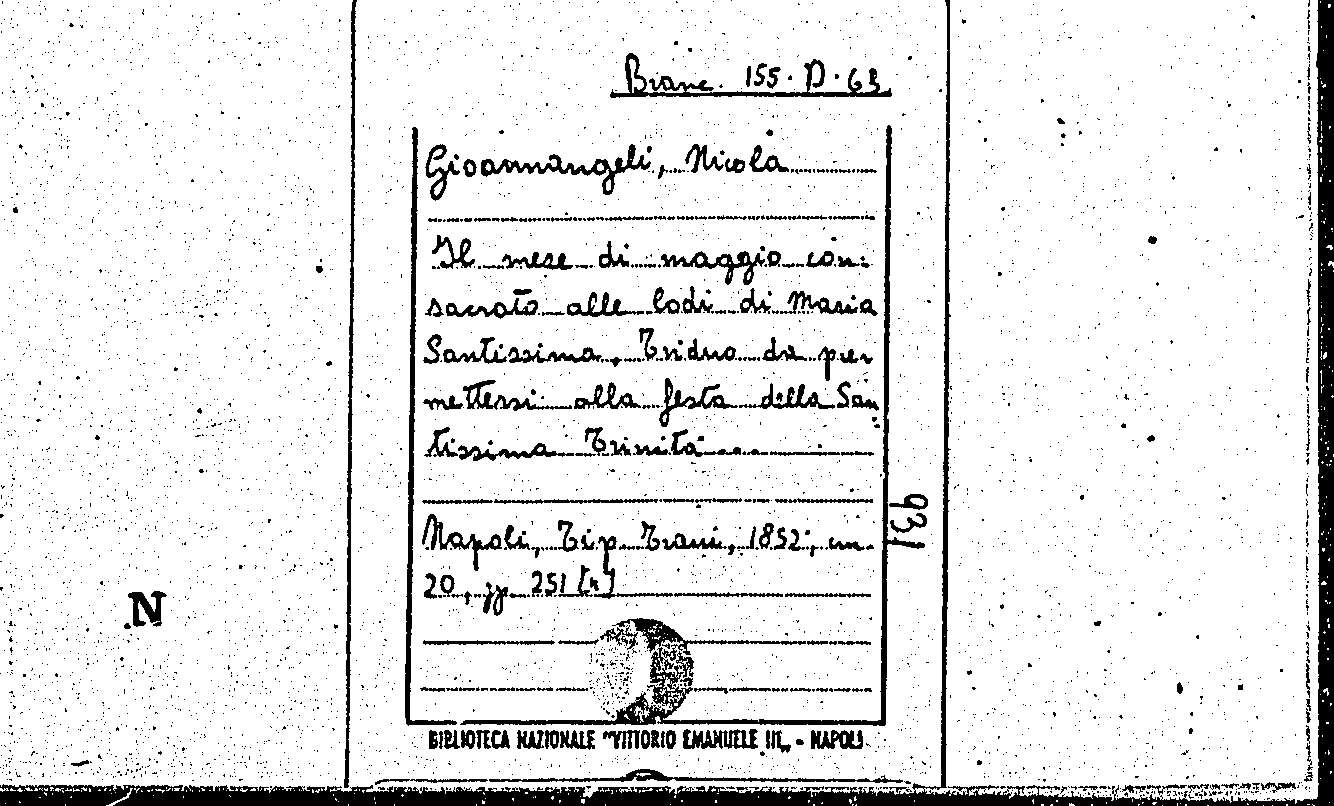 Branc. 155. D. 63
Gioannangeli, Nicola
Il mese di maggio con:
sacrato alle lodi di Maria
Santissima. Triduo da pre
mettersi alla festa della San
tissima Trinità...
Napoli, Tip. Trani, 1852; cm.
20, pp. 251 [n]
931
N
BIBLIOTECA NAZIONALE "VITTORIO EMANUELE III„ - NAPOLI